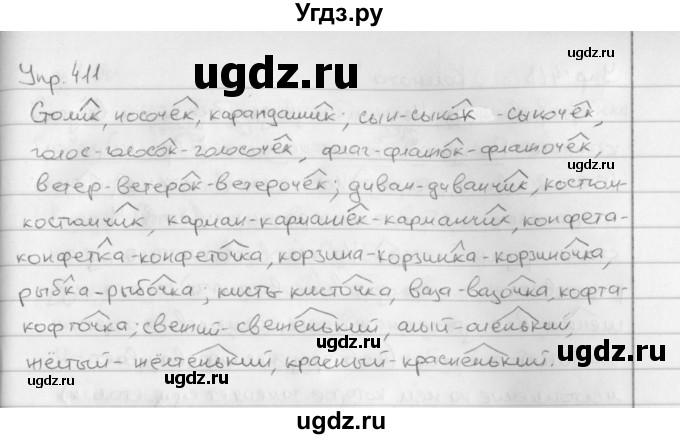 Угдз.ру
Упр. 411
Столик, носочек, карандашик; сын-сынок-сыночек,
голос-голосок-голосочек, флаг-флажок-флажочек,
ветер-ветерок-ветерочек; диван-диванчик, костюм-
костюмчик, карман-кармашек-карманчик, конфета-
конфетка-конфеточка, корзина-корзинка-корзиночка,
рыбка-рыбочка; кисть-кисточка, ваза-вазочка, кофта-
кофточка; светлый-светленький, алый-аленький,
жёлтый-жёлтенький, красный-красненький.
ugdz.ru
ugdz.ru
ugdz.ru
ugdz.ru
ugdz.ru
ugdz.ru
ugdz.ru
ugdz.ru
ugdz.ru
ugdz.ru
ugdz.ru
ugdz.ru